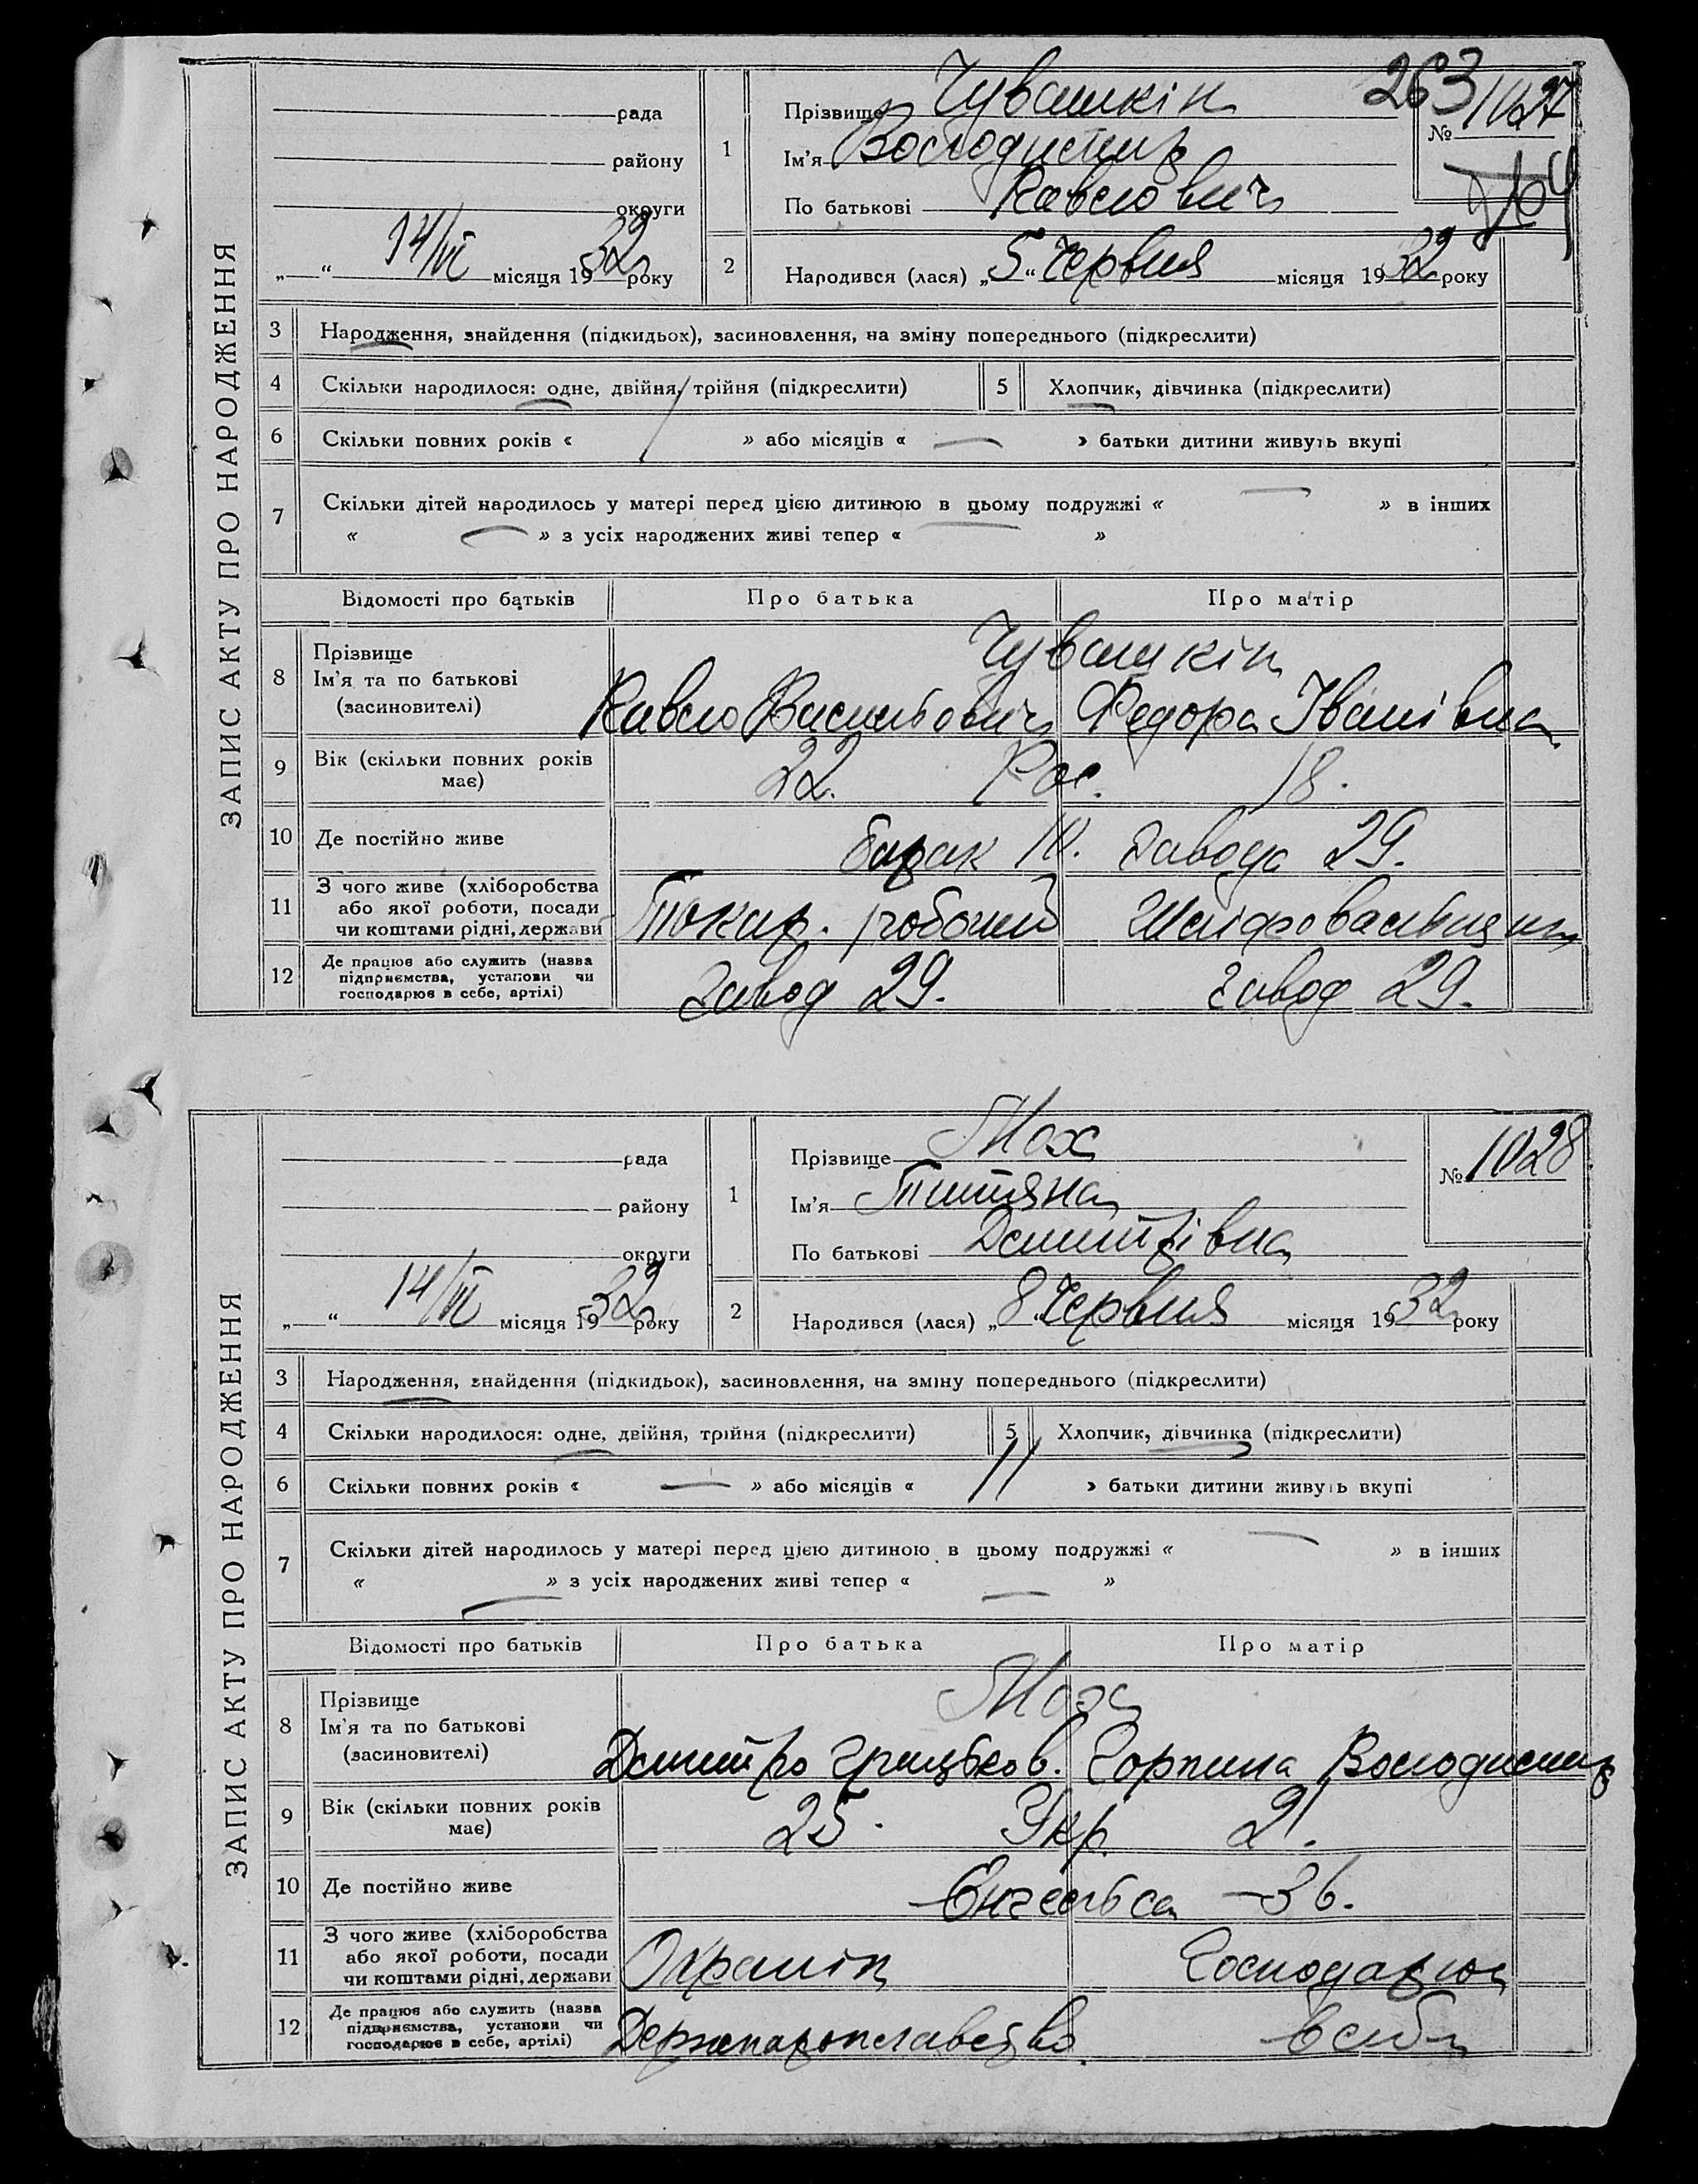 ЗАПИС АКТУ ПРО НАРОДЖЕННЯ
263
рада
району
округи
„ “ 14/VI місяця 1932 року
1
Прізвище Чувашкін
Ім'я Володимир
По батькові Павлович
№ 1027
264
2
Народився (лася) „5“ Червня місяця 1932 року
3 Народження, знайдення (підкидьок), засиновлення, на зміну попереднього (підкреслити)
4 Скільки народилося: одне, двійня, трійня (підкреслити)
5 Хлопчик, дівчинка (підкреслити)
6 Скільки повних років « » або місяців « — » батьки дитини живуть вкупі
7 Скільки дітей народилось у матері перед цією дитиною в цьому подружжі « — » в інших
« — » з усіх народжених живі тепер « — »
Відомості про батьків Про батька Про матір
8 Прізвище
Ім'я та по батькові
(засиновителі)
Чувашкін
Павло Васильович Федора Іванівна
9 Вік (скільки повних років
має)
22. Рос. 18.
10 Де постійно живе
барак 10. Завода 29.
11 З чого живе (хліборобства
або якої роботи, посади
чи коштами рідні, держави
Токар. робочий Шліфовальщиц
12 Де працює або служить (назва
підприємства, установи чи
господарює в себе, артілі)
Завод 29. Завод 29.
ЗАПИС АКТУ ПРО НАРОДЖЕННЯ
рада
району
округи
„ “ 14/VI місяця 1932 року
1
Прізвище Мох
Ім'я Титяна
По батькові Дмитрівна
№ 1028
2
Народився (лася) „8“ Червня місяця 1932 року
3 Народження, знайдення (підкидьок), засиновлення, на зміну попереднього (підкреслити)
4 Скільки народилося: одне, двійня, трійня (підкреслити)
5 Хлопчик, дівчинка (підкреслити)
6 Скільки повних років « — » або місяців « 11 » батьки дитини живуть вкупі
7 Скільки дітей народилось у матері перед цією дитиною в цьому подружжі « — » в інших
« — » з усіх народжених живі тепер « — »
Відомості про батьків Про батька Про матір
8 Прізвище
Ім'я та по батькові
(засиновителі)
Мох
Дмитро Грицьков. Горпина Володимир
9 Вік (скільки повних років
має)
25. Укр. 21.
10 Де постійно живе
Енгельса – 36.
11 З чого живе (хліборобства
або якої роботи, посади
чи коштами рідні, держави
Охранік Господарює
12 Де працює або служить (назва
підприємства, установи чи
господарює в себе, артілі)
Держпароплавство. в себе